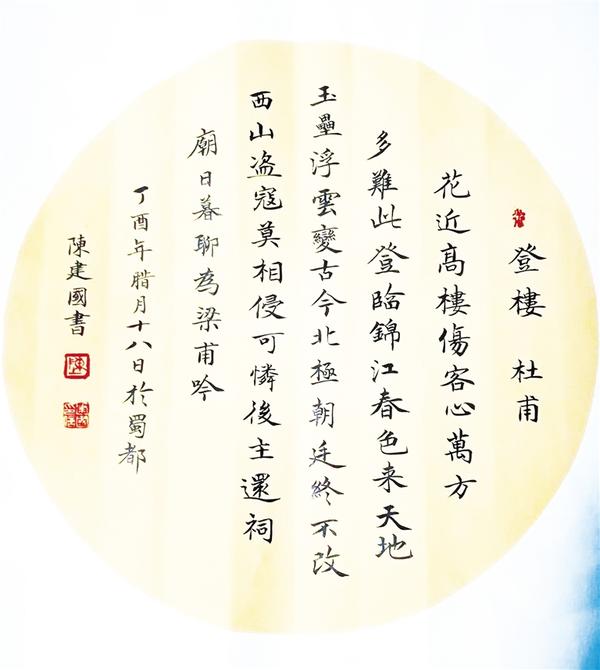 登樓 杜甫
花近高樓傷客心萬方
多難此登臨錦江春色来天地
玉壘浮雲變古今北極朝廷終不改
西山盗寇莫相侵可憐後主還祠
廟日暮聊為梁甫吟
丁酉年腊月十八日於蜀都
陳建國書